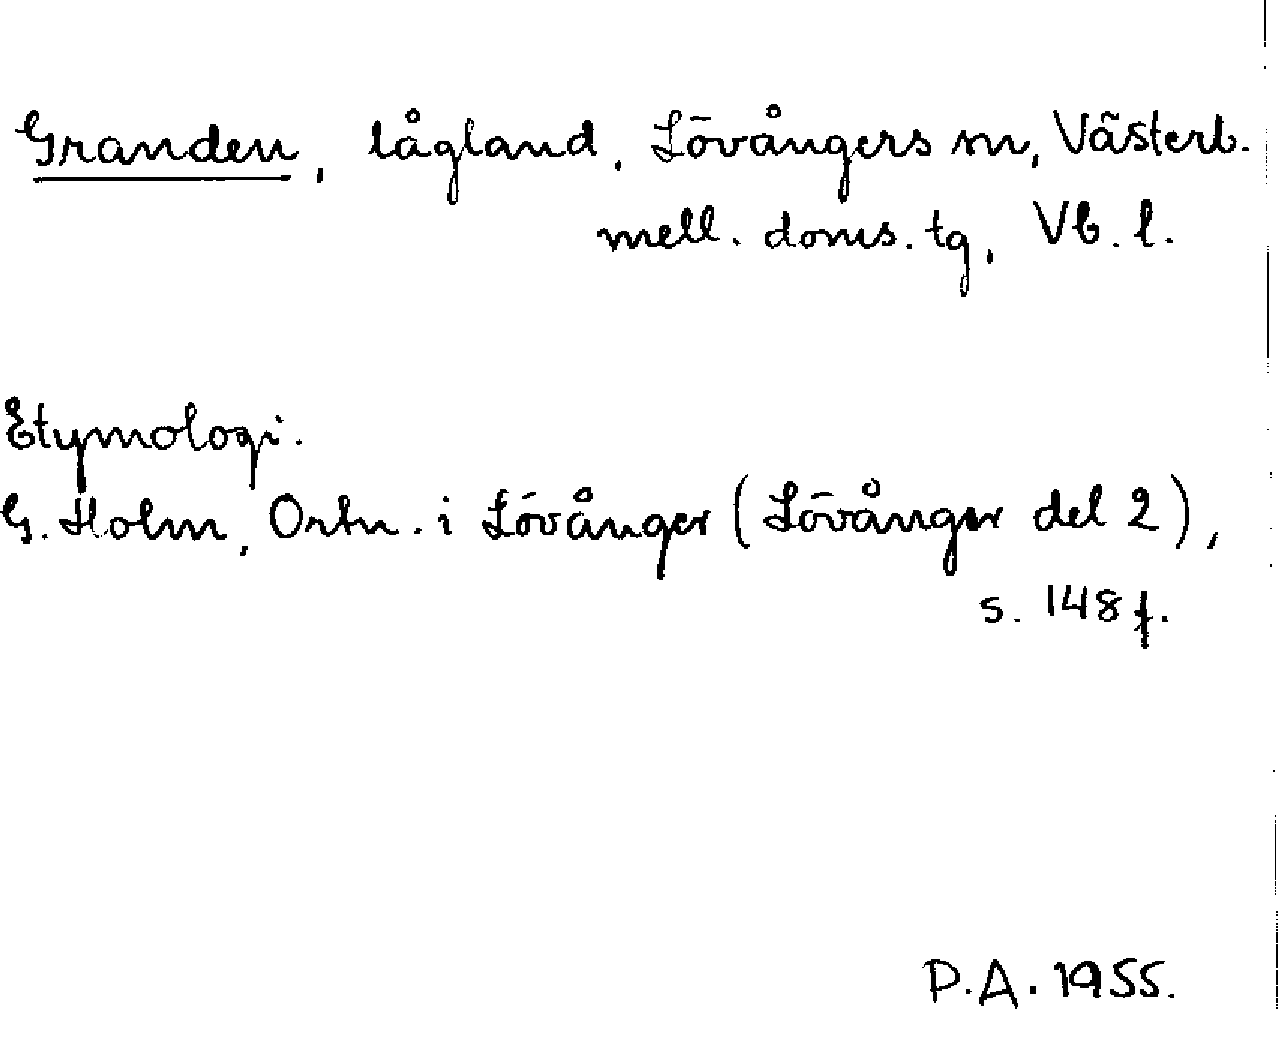 Granden, lågland, Lövångers sn, Västerb.
mell. doms. tg, Vb. l.
Etymologi.
G. Holm, Ortn. i Lövånger (Lövånger del 2),
s. 148 f.
P.A. 1955.